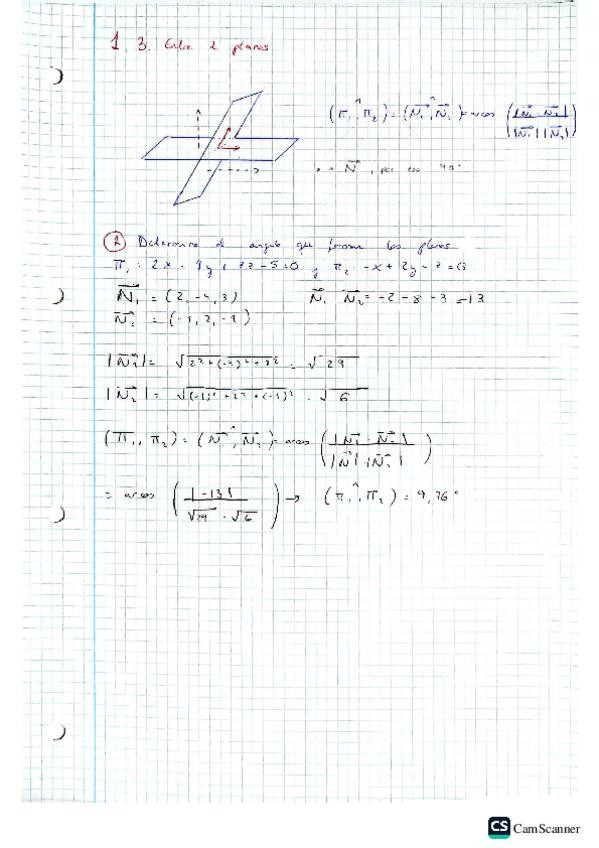 1.3. Entre 2 planos
(π₁^,π₂) = (N₁^,N₂) = arcos (|N₁ · N₂| / |N₁| |N₂|)
N, por 90°
② Determina el angulo que forman los planos
π₁: 2x - 4y + 3z - 5 = 0 y π₂: -x + 2y - z = 0
N₁ = (2, -4, 3) N₁ N₂ = -2 - 8 - 3 = -13
N₂ = (-1, 2, -1)
|N₁| = √2² + (-4)² + 3² = √29
|N₂| = √(-1)² + 2² + (-1)² = √6
(π₁, π₂) = (N₁^, N₂) = arcos (|N₁ · N₂| / |N| · |N₂|)
= arcos (|-13| / √29 · √6) → (π₁^, π₂) = 9,76°
CS CamScanner